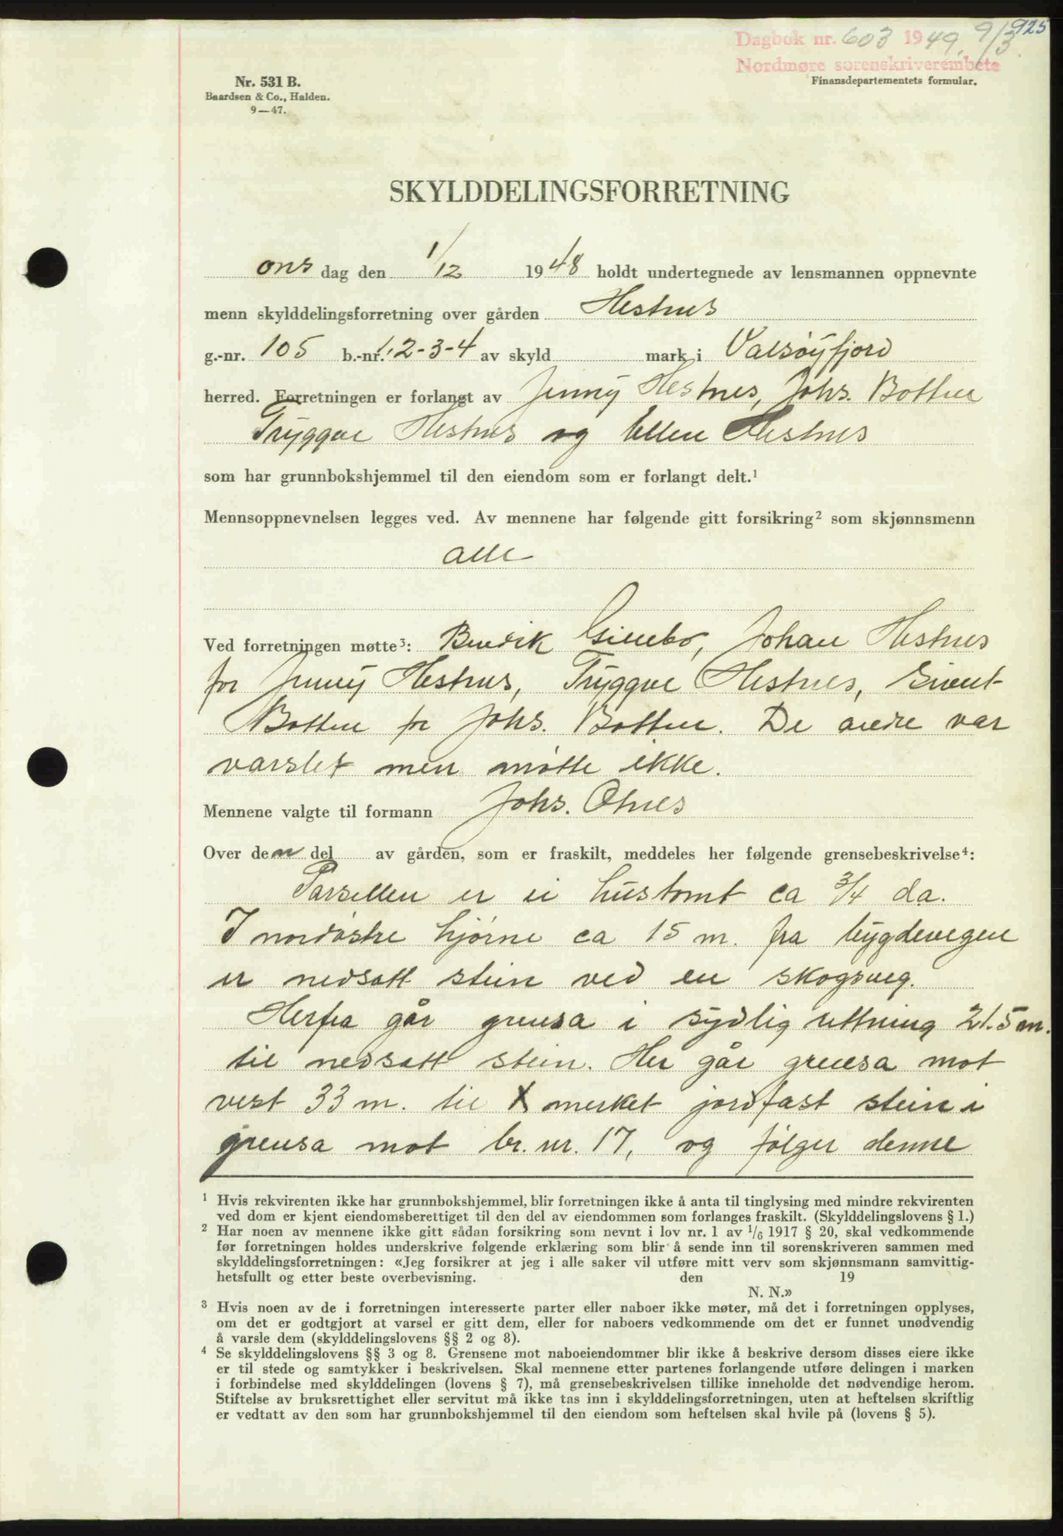 925
Dagbok nr. 603 1949. 9/3
Nordmøre sorenskriverembete
Nr. 531 B.
Baardsen & Co., Halden.
9—47.
Finansdepartementets formular.
SKYLDDELINGSFORRETNING
ons dag den 1/12 1948 holdt undertegnede av lensmannen oppnevnte
menn skylddelingsforretning over gården Hestnes
g.-nr. 105 b.-nr. 1.2-3-4 av skyld mark i Valsøyfjord
herred. Forretningen er forlangt av Jenny Hestnes, Johs. Botten
Tryggve Hestnes og Ellen Hestnes
som har grunnbokshjemmel til den eiendom som er forlangt delt.¹
Mennsoppnevnelsen legges ved. Av mennene har følgende gitt forsikring² som skjønnsmenn
alle
Ved forretningen møtte³: Bendik Gimbo, Johan Hestnes
for Jenny Hestnes, Tryggve Hestnes, Sivert
Botten for Johs. Botten. De andre var
varslet men møtte ikke.
Mennene valgte til formann Johs. Otnes
Over den del av gården, som er fraskilt, meddeles her følgende grensebeskrivelse⁴:
Parsellen er ei hustomt ca 3/4 da.
I nordøstre hjørne ca 15 m. fra bygdevegen
er nedsatt stein ved en skogsveg.
Herfra går grensa i sydlig rettning 21.5 m.
til nedsatt stein. Her går grensa mot
vest 33 m. til X merket jordfast stein i
grensa mot br. nr. 17, og følger denne
¹ Hvis rekvirenten ikke har grunnbokshjemmel, blir forretningen ikke å anta til tinglysing med mindre rekvirenten
ved dom er kjent eiendomsberettiget til den del av eiendommen som forlanges fraskilt. (Skylddelingslovens § 1.)
² Har noen av mennene ikke gitt sådan forsikring som nevnt i lov nr. 1 av 1/6 1917 § 20, skal vedkommende
før forretningen holdes underskrive følgende erklæring som blir å sende inn til sorenskriveren sammen med
skylddelingsforretningen: «Jeg forsikrer at jeg i alle saker vil utføre mitt verv som skjønnsmann samvittig-
hetsfullt og etter beste overbevisning. den 19
N. N.»
³ Hvis noen av de i forretningen interesserte parter eller naboer ikke møter, må det i forretningen opplyses,
om det er godtgjort at varsel er gitt dem, eller for naboers vedkommende om det er funnet unødvendig
å varsle dem (skylddelingslovens §§ 2 og 8).
⁴ Se skylddelingslovens §§ 3 og 8. Grensene mot naboeiendommer blir ikke å beskrive dersom disses eiere ikke
er til stede og samtykker i beskrivelsen. Skal mennene etter partenes forlangende utføre delingen i marken
i forbindelse med skylddelingen (lovens § 7), må grensebeskrivelsen tillike inneholde det nødvendige herom.
Stiftelse av bruksrettighet eller servitut må ikke tas inn i skylddelingsforretningen, uten at heftelsen skriftlig
er vedtatt av den som har grunnbokshjemmel til den eiendom som heftelsen skal hvile på (lovens § 5).